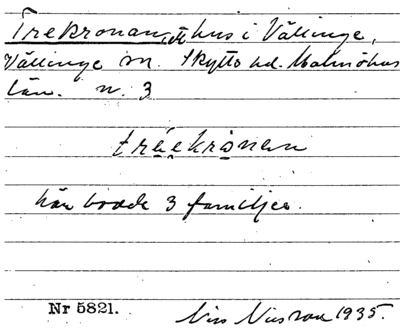 Trekronan, ett hus i Vällinge,
Vällinge sn. Skytts hd. Malmöhus
län. n. 3
tréekrånan
här bodde 3 familjer.
Nr 5821. Nils Nilsson 1935.